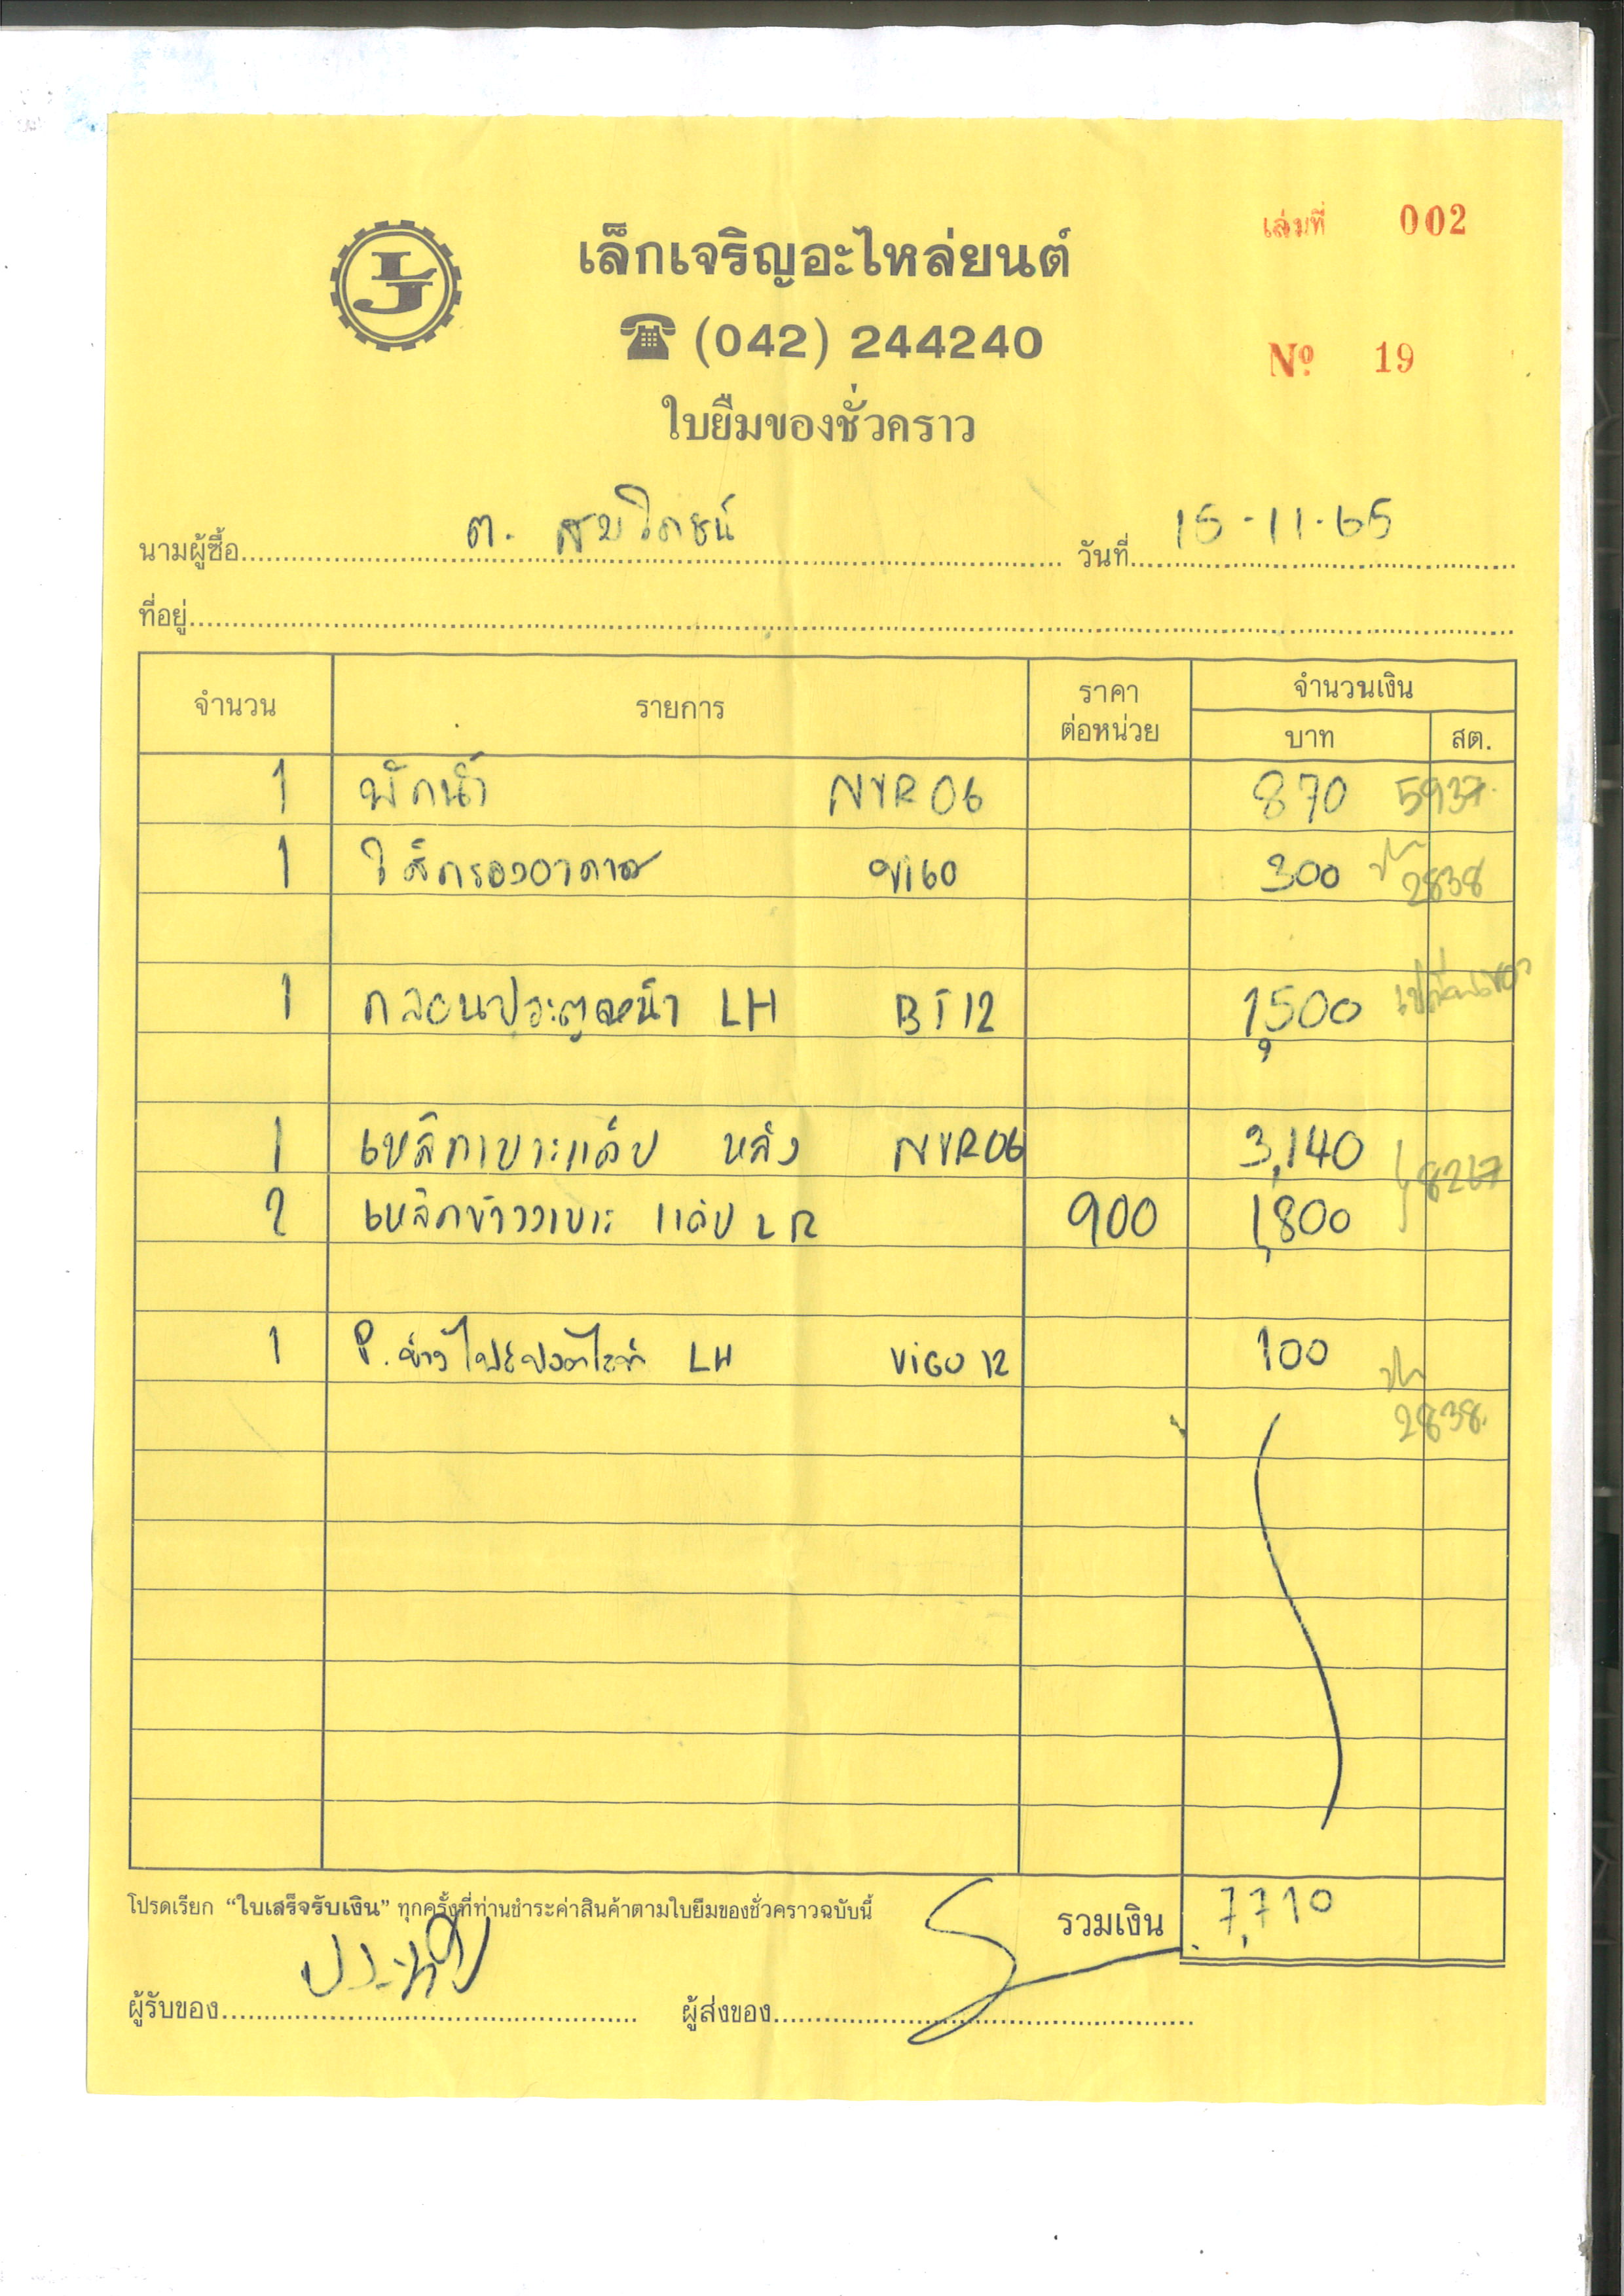 เล่มที่ 002
LJ
เล็กเจริญอะไหล่ยนต์
☎ (042) 244240
Nº 19
ใบยืมของชั่วคราว
นามผู้ซื้อ ต. สมโภชน์ วันที่ 15-11-65
ที่อยู่
จำนวน รายการ ราคาต่อหน่วย จำนวนเงิน
บาท สต.
1 พักน้ำ NVR06 870 5937
1 ไส้กรองอากาศ วีโก้ 300
2838
1 กลอนประตูหน้า LH BT12 1,500
1 เหล็กเบาะแค็ป หลัง NVR06 3,140
8267
2 เหล็กข้างเบาะ แค็ป LR 900 1,800
1 LH VIGO 12 100
2838
โปรดเรียก “ใบเสร็จรับเงิน” ทุกครั้งที่ท่านชำระค่าสินค้าตามใบยืมของชั่วคราวฉบับนี้ รวมเงิน 7,710
ผู้รับของ ผู้ส่งของ